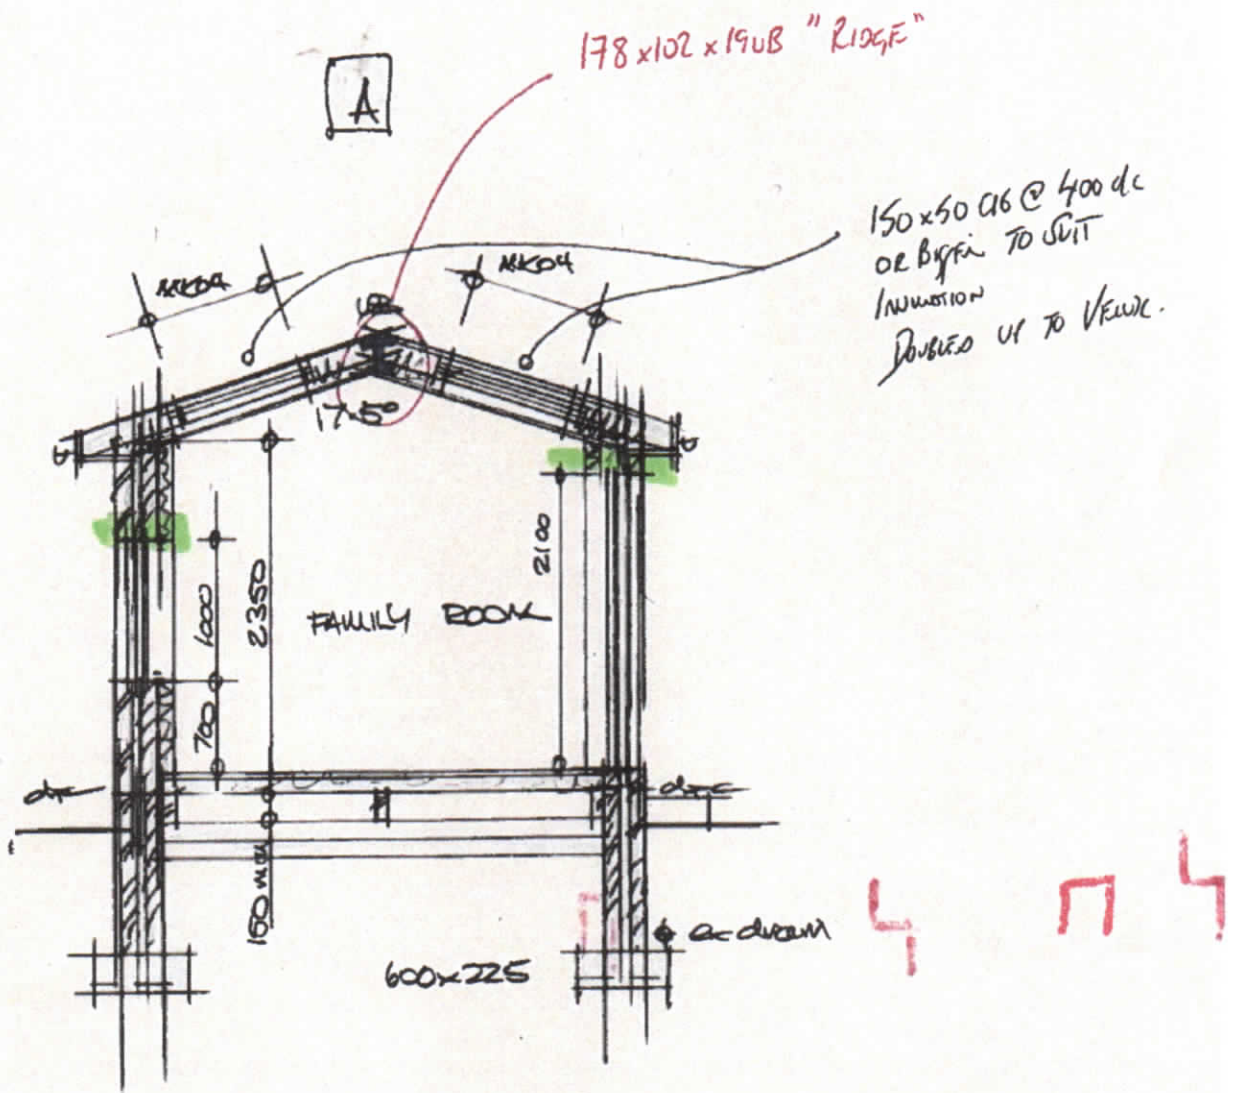 178x102x19UB "RIDGE"
A
150x50 C16 @ 400 c/c
OR BIGGER TO SUIT
INSULATION
DOUBLED UP TO VELUX.
MK04
MK04
17.5°
2100
1000
2350
FAMILY ROOM
700
dpc
dpc
150 min
ex drain
600x225